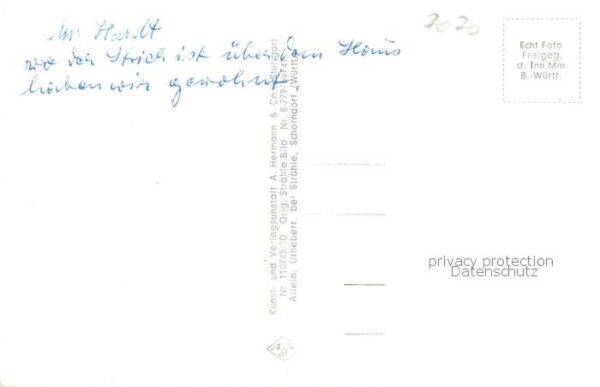 wo der Strich ist über dem Haus
haben wir gewohnt.
7070
Echt Foto
Freigeg.
d. Inn. Min.
B.-Württ.
Kunst- und Verlagsanstalt A. Hermann & Co., Stuttgart
Nr. 110745 3D Orig. Strähle Bild Nr. 8-779
Allein. Urheberr. bei Strähle, Schorndorf (Württ.)
privacy protection
Datenschutz